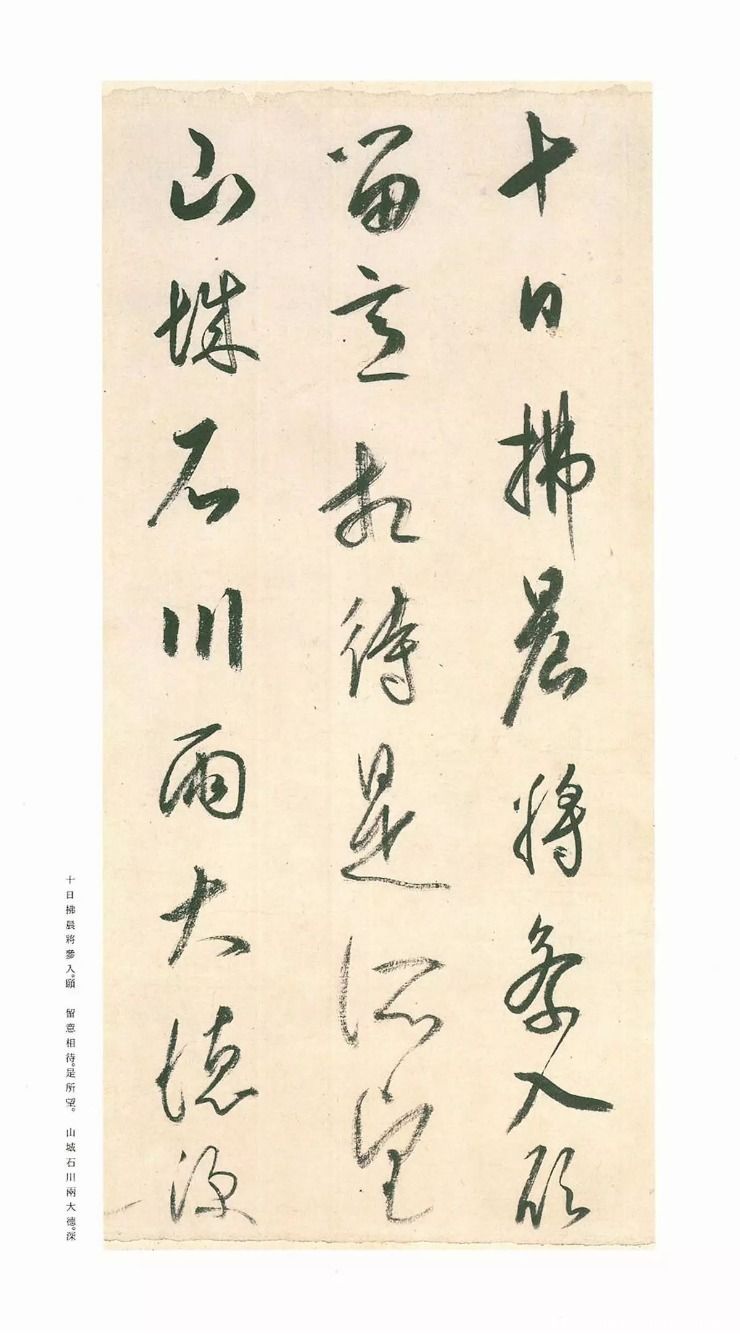 十日拂晨將參入願
留意相待是所望
山城石川兩大德深
十日拂晨將參入。願　留意相待。是所望。　山城石川兩大德。深